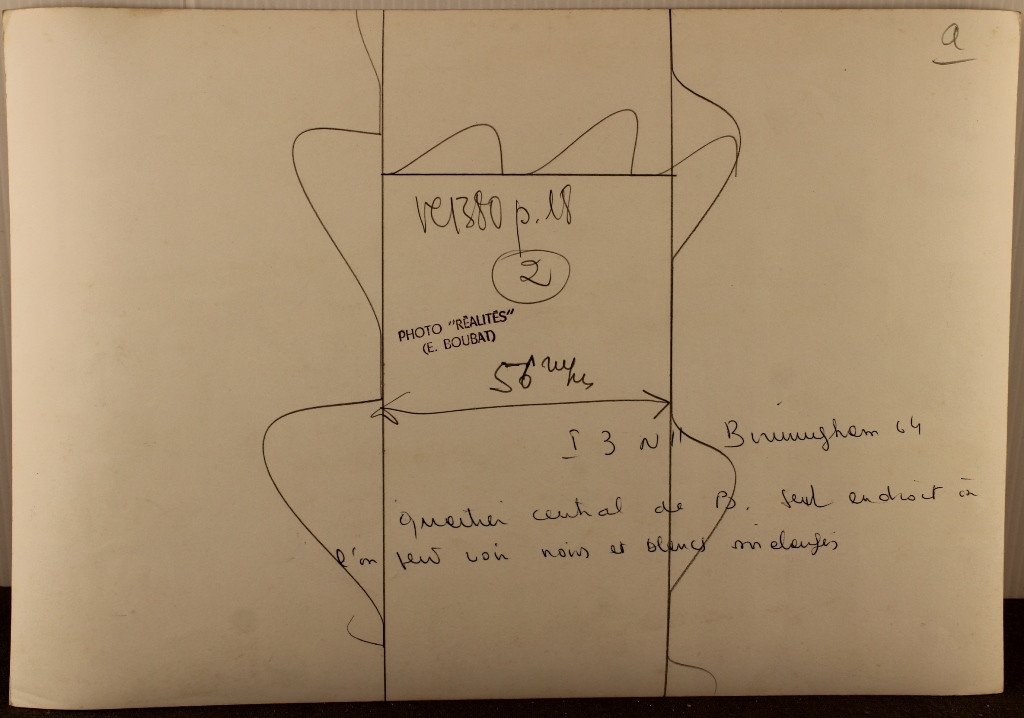 a
VE1380 p. 18
2
PHOTO "RÉALITÉS"
(E. BOUBAT)
56 m/m
I 3 N 11 Birmingham 64
Quartier central de B. seul endroit où
l'on peut voir noirs et blancs mélangés